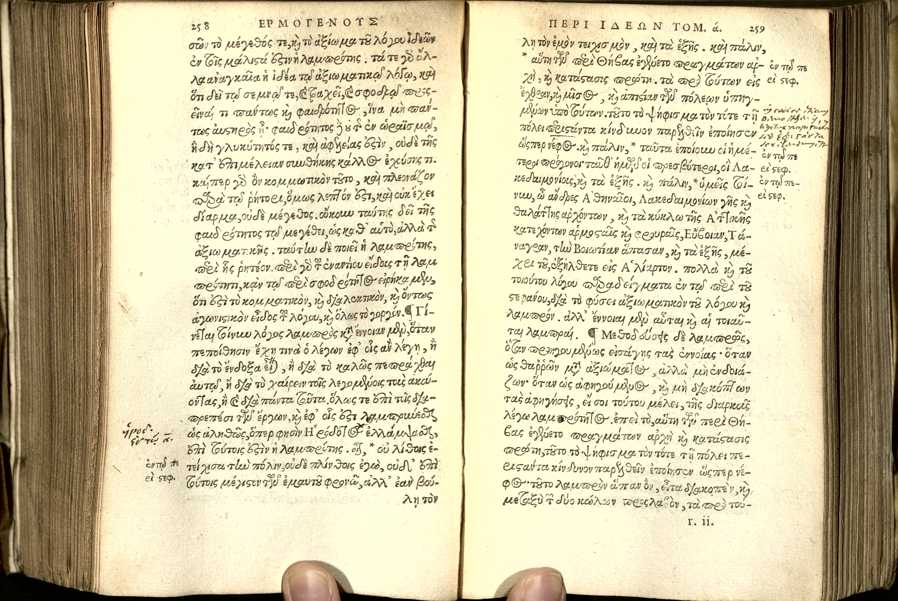 258 ΕΡΜΟΓΕΝΟΥΣ
σῶν τὸ μέγεθός τε, κὶ τὸ ἀξίωμα τοῦ λόγου ἰδεῶν
ἐν τοῖς μάλιστά ἐστιν ἡ λαμπρότης. τά τε γδ ἄλ-
λα ἀναγκαία ἡ ἰδέα τῷ ἀξιωματικῷ λόγῳ, καὶ
ὅτι δεῖ τῷ σεμνῷ τε, καὶ τραχεῖ, καὶ σφοδρῷ προς-
εῖναί τι πάντως κὶ φαιδρότητος, ἵνα μὴ παν-
τως αὐστηρὸς ᾖ· φαιδρότητος οὐ τ ἐν ὡραϊσμῷ,
ἢ δὴ γλυκύτητός τε, καὶ ἀφελείας ἐστὶν, οὐδὲ τῆς
κατ' ἐπιμέλειαν συνθήκης κάλλος ἐχούσης τι.
καίπερ γδ ὂν κομμωτικὸν τοῦτο, καὶ πλεονάζον
παρὰ τῷ ῥήτορι, ὅμως λεπτόν ἐστι, καὶ οὐκ ἔχει
δίαρμα, οὐδὲ μέγεθος. οὔκουν ταύτης δεῖ τῆς
φαιδρότητος τῷ μεγέθει, ὡς καθ' αὑτὸ, ἀλλὰ τ
ἀξιωματικῆς. ταύτην δὲ ποιεῖ ἡ λαμπρότης,
περὶ ἧς ῥητέον. περὶ γδ τ ἐναντίου εἴδους τῇ λαμ
πρότητι, κἀν τῷ περὶ σφοδρότητος εἰρήκαμεν,
ὅτι ἐστὶ τὸ κομματικὸν, κὶ διαλεκτικὸν, κὶ ὄντως
ἀγωνιστικὸν εἶδος τ λόγου, κὶ ὅλως τὸ γοργόν. ¶ Γί-
νεται τοίνυν λόγος λαμπρὸς κατ' ἔννοιαν μὲν, ὅταν
πεποίθησιν ἔχῃ τινὰ ὁ λέγων ἐφ' οἷς ἂν λέγῃ, ἢ
διὰ τὸ ἔνδοξα εἶναι, ἢ διὰ τὸ καλῶς πεπρᾶχθαι
αὐτῷ, ἢ διὰ τὸ χαίρειν τοῖς λεγομένοις τοὺς ἀκού-
οντας, ἢ διὰ πάντα ταῦτα, ὅλως τε ἐπὶ τοῖς δια-
πρεπέσι τῶν ἔργων, κὶ ἐφ' οἷς ἐστι λαμπρύνεσθαι
ὡς ἀληθῶς, ὅπερ φησὶν Ἡρόδοτος ἐλλάμψασθαι,
ἐπὶ τούτοις ἐστὶν ἡ λαμπρότης. οἷον, * οὐ λίθοις ἐ-
τείχισα τὴν πόλιν, οὐδὲ πλίνθοις ἐγὼ, οὐδ' ἐπὶ
τούτοις μέγιστον τῶν ἐμαυτοῦ φρονῶ, ἀλλ' ἐὰν βού-
λῃ τὸν
ἐν τῷ πε
ρὶ στεφ.
ΠΕΡΙ ΙΔΕΩΝ ΤΟΜ. ά. 259
λῃ τὸν ἐμὸν τειχισμὸν, καὶ τὰ ἑξῆς. καὶ πάλιν,
* αὕτη τῶν περὶ Θήβας ἐγένετο πραγμάτων ἀρ-
χὴ, κὶ κατάστασις πρώτη. τὰ πρὸ τούτων εἰς
ἔχθραν, κὶ μῖσος, κὶ ἀπιστίαν τῶν πόλεων ὑπηγ-
μένων ὑπὸ τούτων. τοῦτο τὸ ψήφισμα τὸν τότε τῇ
πόλει περιστάντα κίνδυνον παρελθεῖν ἐποίησεν
ὥσπερ νέφος. κὶ πάλιν, * ταῦτα ἐποίουν οἱ ἡμέ-
τεροι πρόγονοι· ταῦθ' ἡμῶν οἱ πρεσβύτεροι, οἳ Λα-
κεδαιμονίους, κὶ τὰ ἑξῆς. κὶ πάλιν, * ὑμεῖς τοί-
νυν, ὦ ἄνδρες Ἀθηναῖοι, Λακεδαιμονίων γῆς κὶ
θαλάττης ἀρχόντων, κὶ τὰ κύκλῳ τῆς Ἀττικῆς
κατεχόντων ἁρμοσταῖς κὶ φρουραῖς, Εὔβοιαν, Τά-
ναγραν, τὴν Βοιωτίαν ἅπασαν, κὶ τὰ ἑξῆς, μέ-
χρι τοῦ, ἐξήλθετε εἰς Ἁλίαρτον. πολλὰ κὶ τοῦ
τοιούτου λόγου παραδείγματα ἐν τῷ περὶ τοῦ
στεφάνου, διὰ τὸ φύσει ἀξιωματικὸν τοῦ λόγου κὶ
λαμπρόν. ἀλλ' ἔννοιαι μὲν αὗται κὶ αἱ τοιαῦ-
ται λαμπραί. ¶ Μέθοδοι δὲ λαμπρᾶς,
ὅταν προηγουμένως εἰσάγῃς τὰς ἐννοίας· ὅταν
ὡς θαρρῶν μετ' ἀξιώματος, ἀλλὰ μὴ ἐνδοιά-
ζων· ὅταν ὡς ἀφηγούμενος, κὶ μὴ διακόπτων
τὰς ἀφηγήσεις, εἴ σοι τούτου μέλει, τῆς διαρκοῦς
λέγω λαμπρότητος. ἐπεὶ τὸ, αὕτη τῶν περὶ Θή-
βας ἐγένετο πραγμάτων ἀρχὴ κὶ κατάστασις
πρώτη, τοῦτο τὸ ψήφισμα τὸν τότε τῇ πόλει πε-
ριστάντα κίνδυνον παρελθεῖν ἐποίησεν ὥσπερ νέ-
φος· τοῦτο λαμπρὸν ἅπαν ὂν, εἶτα διακοπὲν, κὶ
μεταξὺ τ δύο κώλων προσλαβὸν, τὰ πρὸ τού-
r. ii.
ἐν τῷ πε
ρὶ στεφ.
ἐν τῷ πε
ρὶ στεφ.
ἐν τῷ πε-
ρὶ στεφ.